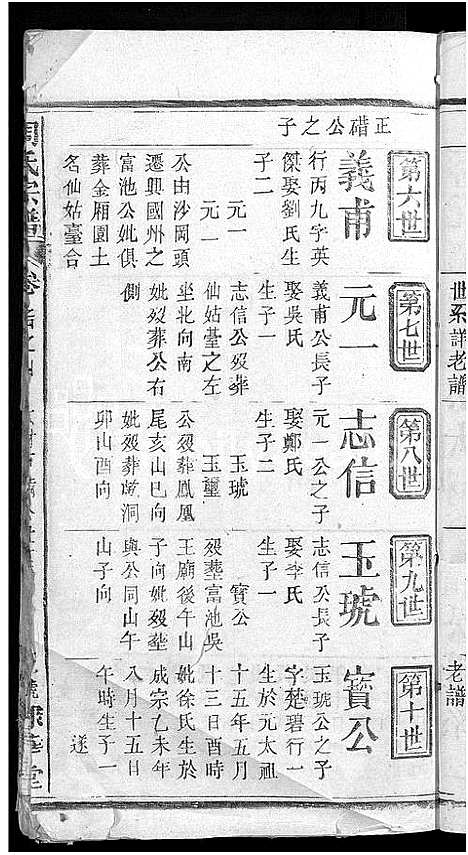 第六世
正䃈公之子
義甫
行丙九字英
傑娶劉氏生
子二
元一
元一
公由沙岡頭
遷興國州之
富池公妣俱
葬金廂園土
名仙姑臺合
第七世
元一
義甫公長子
娶吳氏
生子一
志信公歿葬
仙姑臺之左
坐北向南
妣歿葬公右
側
第八世
志信
元一公之子
娶鄭氏
生子二
玉琥
玉璽
公歿葬鳳凰
尾亥山巳向
妣歿葬
洞
卯山酉向
第九世
玉琥
志信公長子
娶李氏
生子一
寳公
歿塟富池吳
王廟後午山
子向妣歿塟
與公同山午
山子向
第十世
寳公
玉琥公之子
字楚碧行一
生於元太祖
十五年五月
十三日酉時
妣徐氏生於
成宗乙未年
八月十五日
午時生子一
遂
周氏宗譜
卷
世系
老譜
老譜
堂